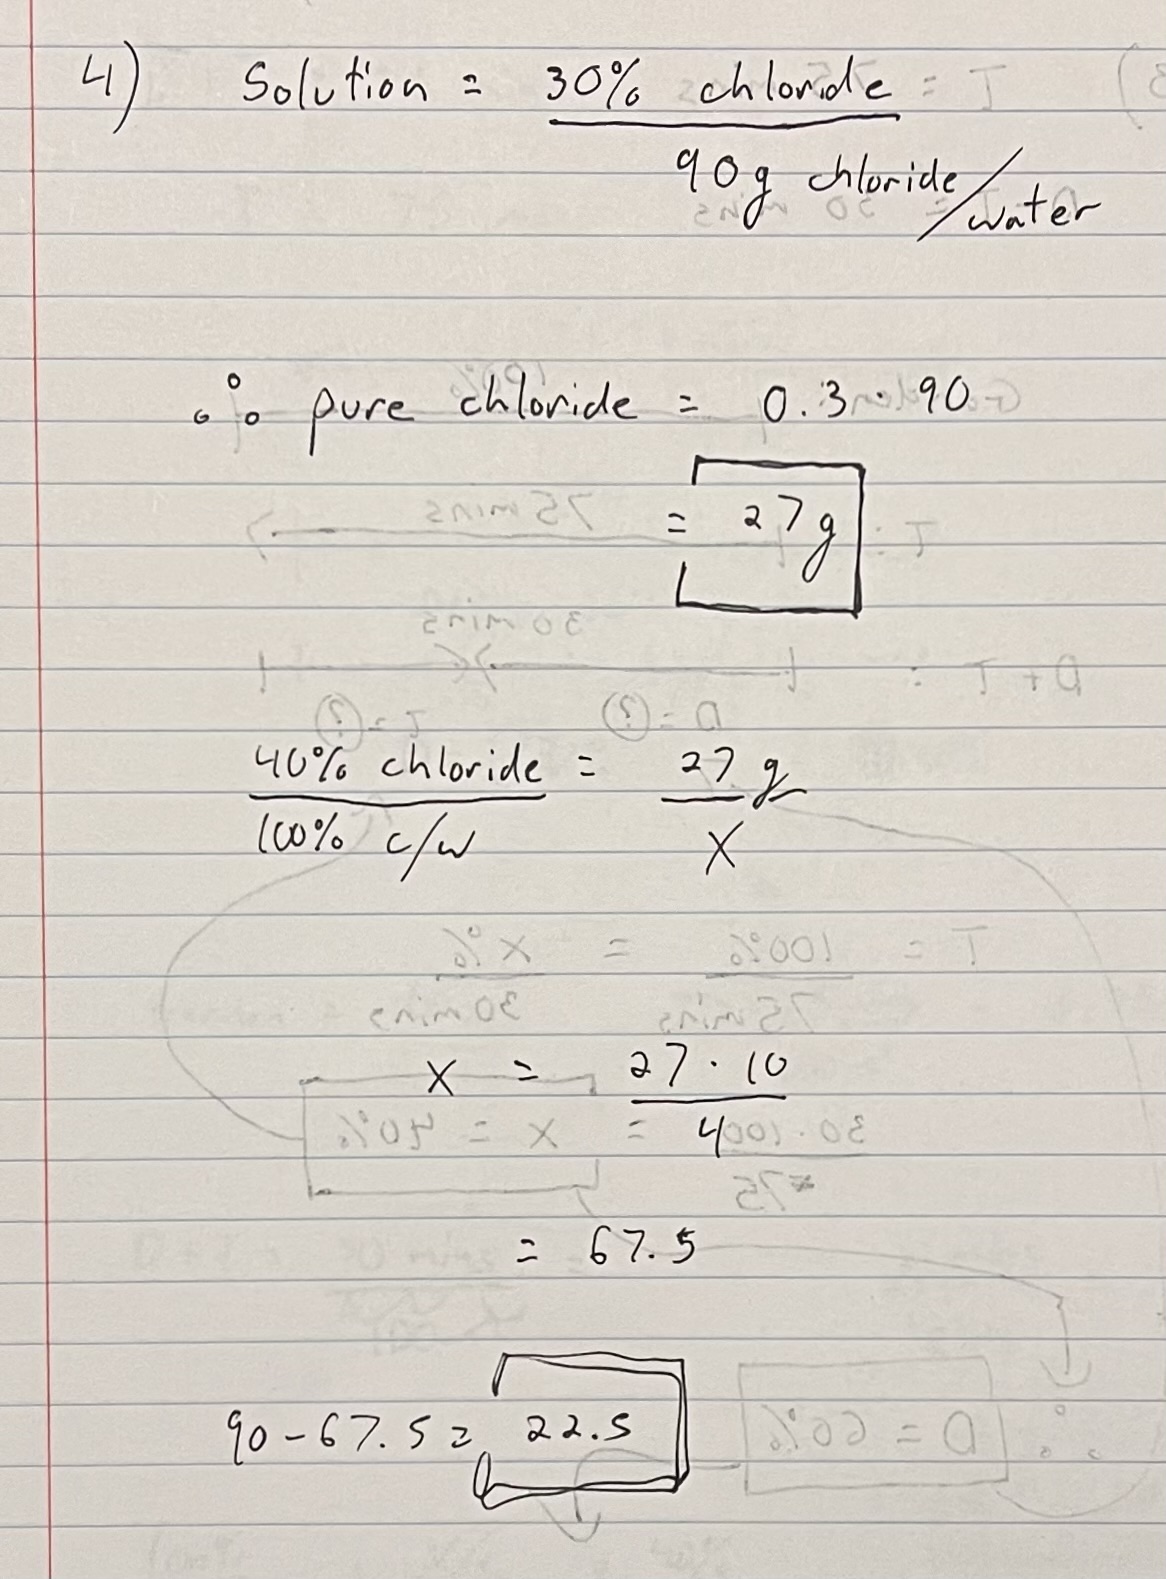 4) Solution = 30% chloride
90g chloride/water
∴ pure chloride = 0.3 · 90
= 27g
40% chloride = 27 g
100% c/w X
X = 27 · 10
4
= 67.5
90 - 67.5 = 22.5